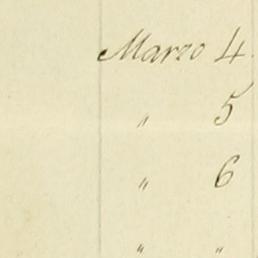 Marzo 4.
" 5
" 6
" "